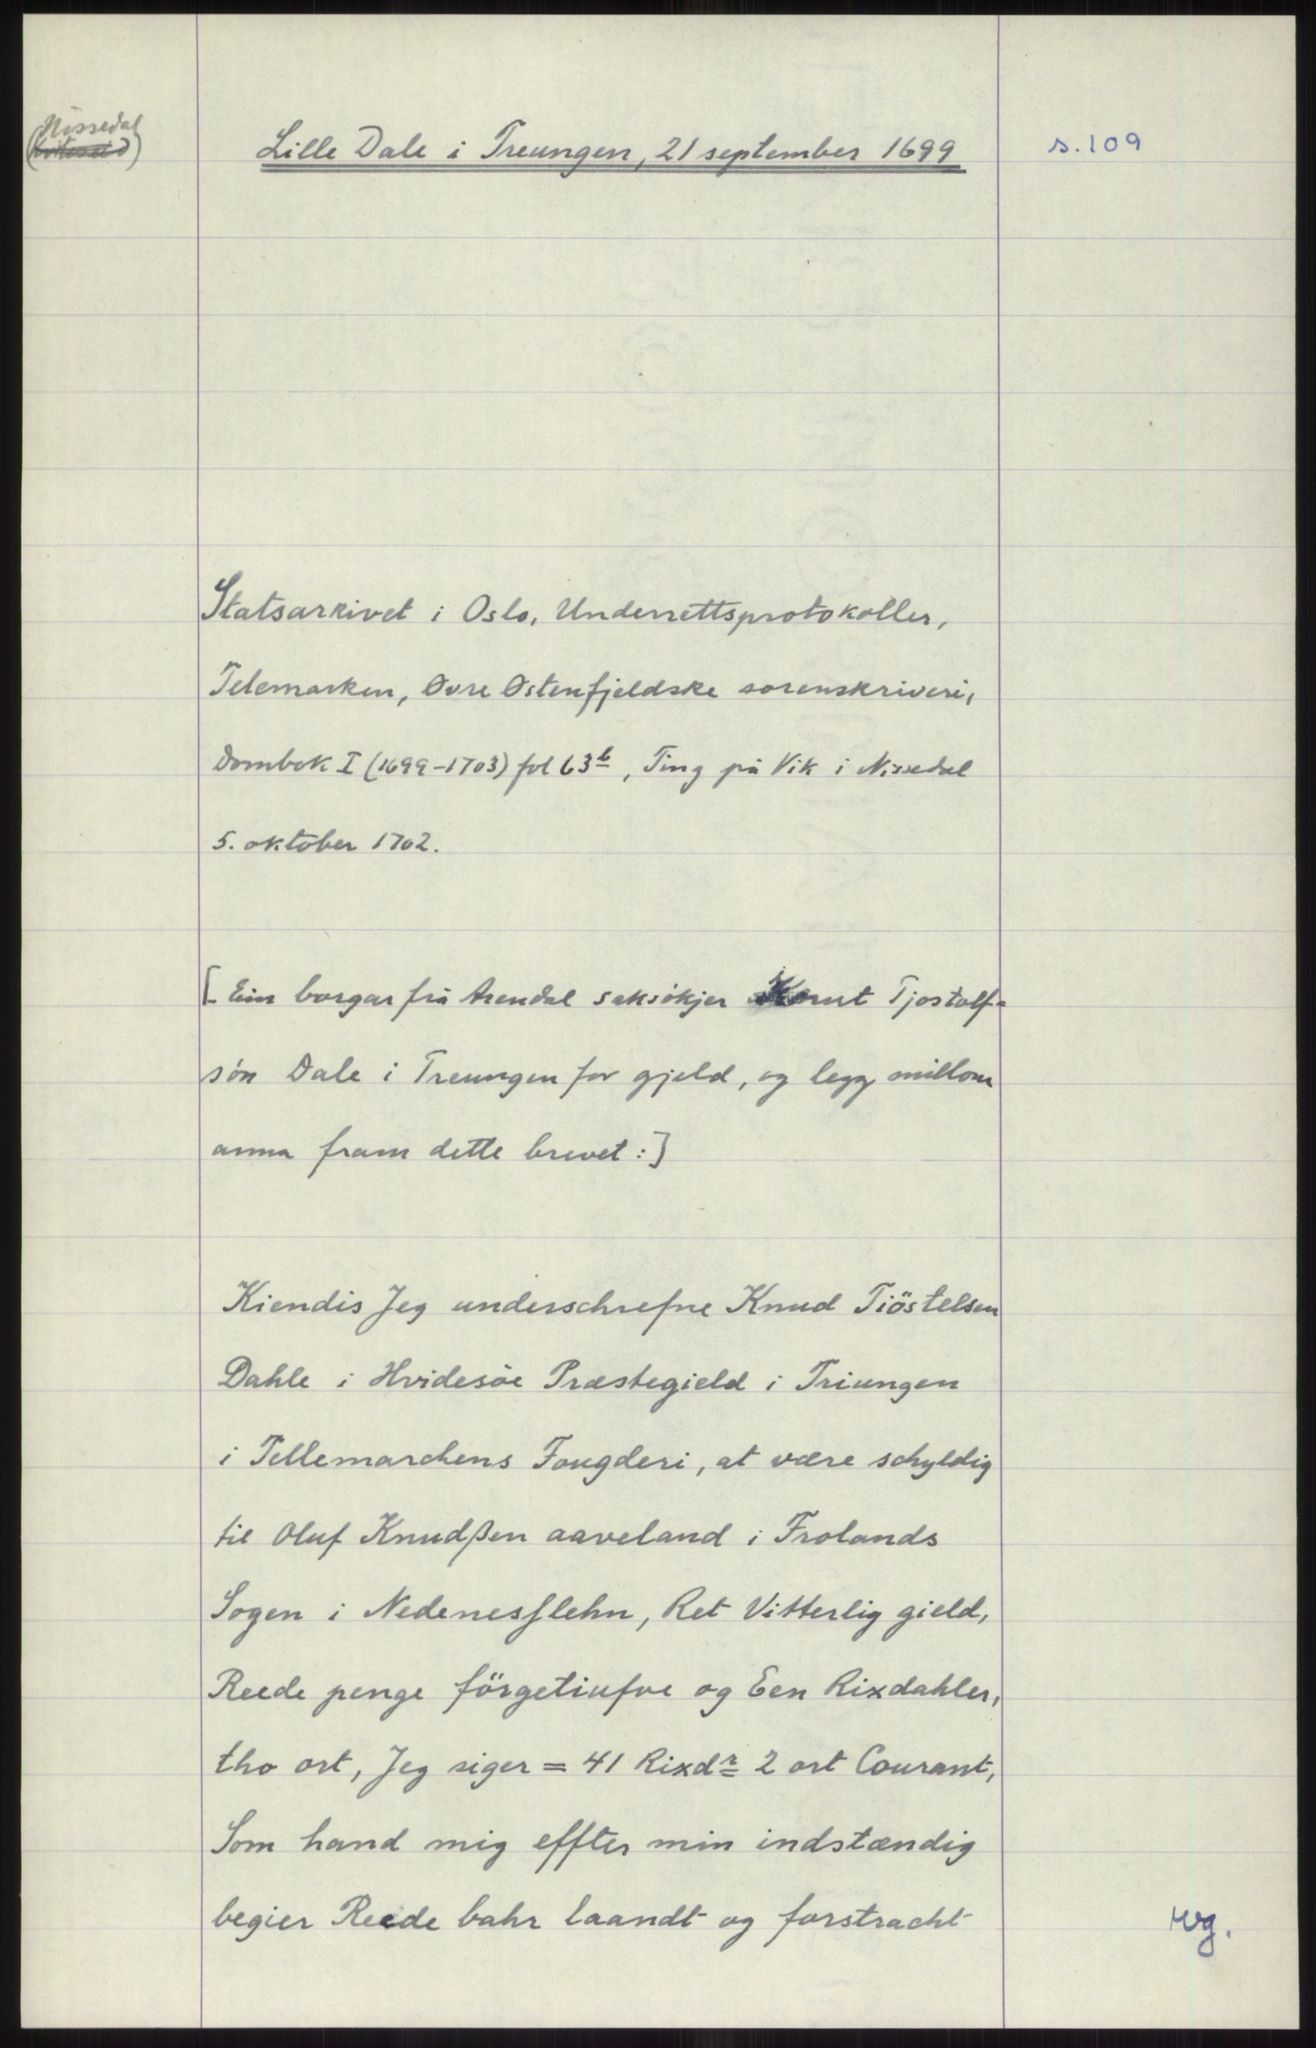 Nissedal
(Kviteseid)
Lille Dale i Treungen, 21 september 1699
s. 109
Statsarkivet i Oslo, Underrettsprotokoller,
Telemarken, Øvre Østenfjeldske sorenskriveri,
Dombok I (1699-1703) fol 63b, Ting på Vik i Nissedal
5. oktober 1702.
[Ein borgar frå Arendal saksökjer Knut Tjostolf-
sön Dale i Treungen for gjeld, og legg millom
anna fram dette brevet:]
Kiendis Jeg underschrefne Knud Tiöstelsen
Dahle i Hvidesöe Præstegield i Triungen
i Tellemarchens Fougderi, at være schyldig
til Oluf Knudßen aaveland i Frolands
Sogen i Nedenesslehn, Ret Vitterlig gield,
Reede penge förgetiufve og Een Rixdahler,
tho ort, Jeg siger = 41 Rixdr 2 ort Courant,
Som hand mig effter min indstændig
begier Reede bahr laandt og forstracht
Hg.